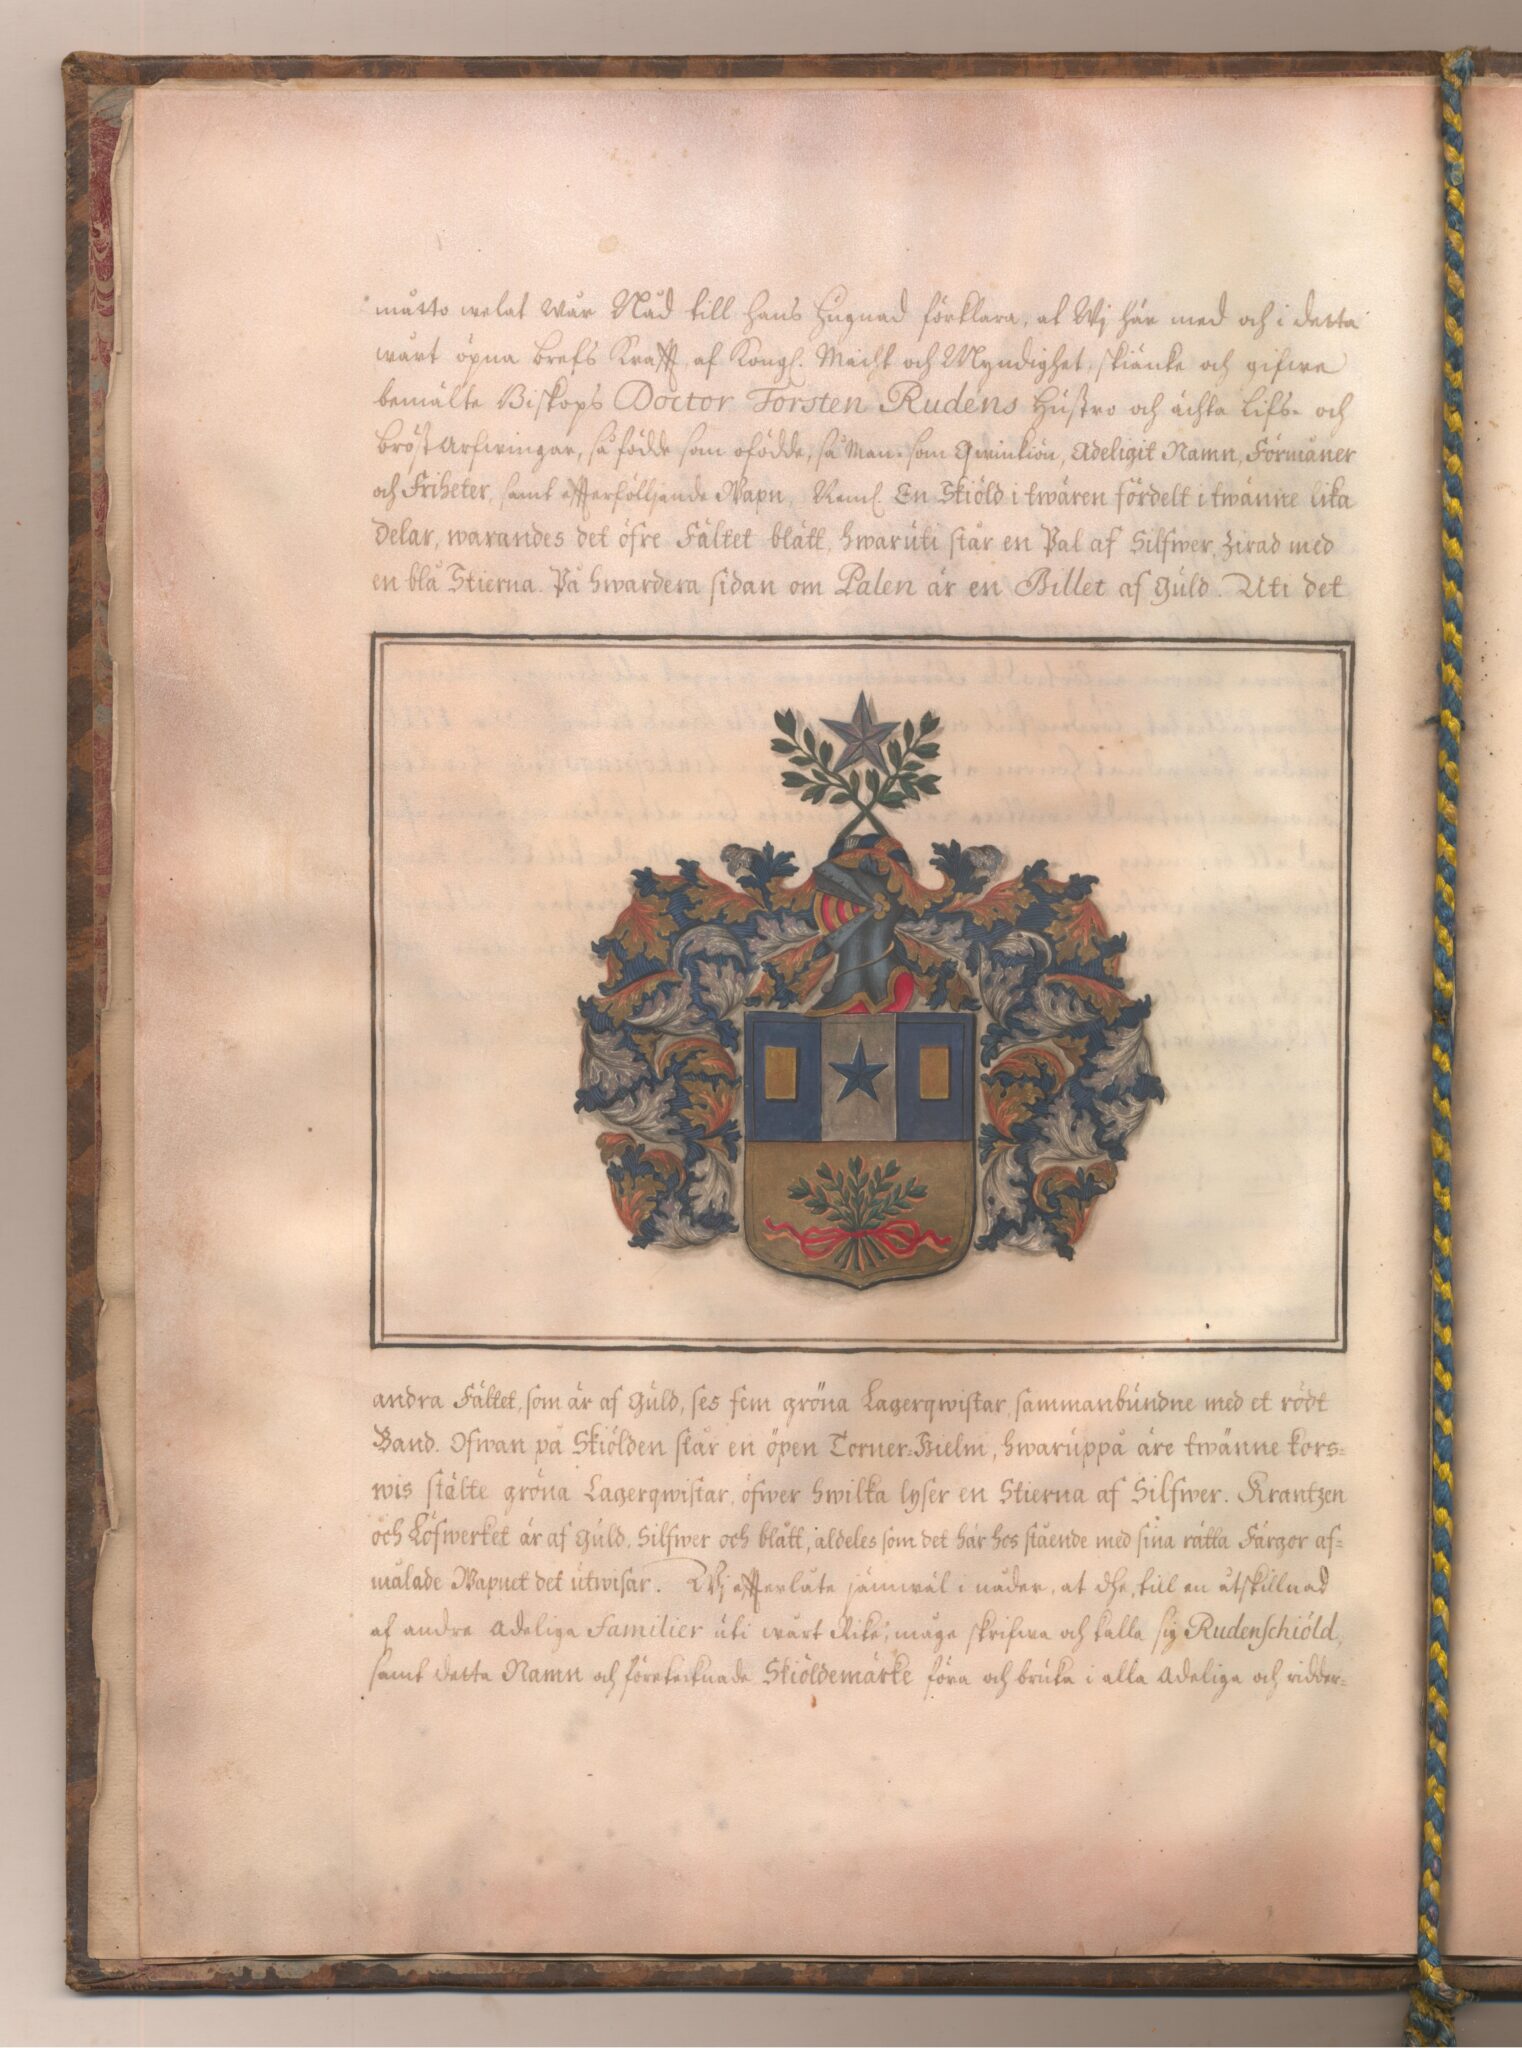 måtto welat Wår Nåd till hans Hugnad förklara, at Wj här med och i detta
wårt öpna brefs Krafft, af Kongl. Macht och Myndighet, skiänke och gifwe
bemälte Biskops Doctor Torsten Rudéns Hustro och ächta Lifs- och
bröst Arfwingar, så födde som ofödde, så Man- som Qwinkiön, Adeligit Namn, Förmåner
och Friheter, samt effterfölljande Wapn, Neml. En Skiöld i twären fördelt i twänne lika
delar, warandes det öfre Fältet blått, hwaruti står en Pal af Silfwer, zirad med
en blå Stierna. På hwardera sidan om Palen är en Billet af Guld. Uti det
andra Fältet, som är af Guld, ses fem gröna Lagerqwistar, sammanbundne med et rödt
Band. Ofwan på Skiölden står en öpen Torner-Hielm, hwaruppå äre twänne kors-
wis stälte gröna Lagerqwistar, öfwer hwilka lyser en Stierna af Silfwer. Krantzen
och Löfwerket är af Guld, Silfwer och blått, aldeles som det här hos stående med sina rätta Färgor af-
målade Wapnet det utwisar. Wj effterlåte jämwäl i nåder, at dhe, till en åtskillnad
af andre Adeliga Familier uti wårt Rike, måge skrifwa och kalla sig Rudenschiöld,
samt detta Namn och företecknade Skiöldemärke föra och bruka i alla Adeliga och ridder-